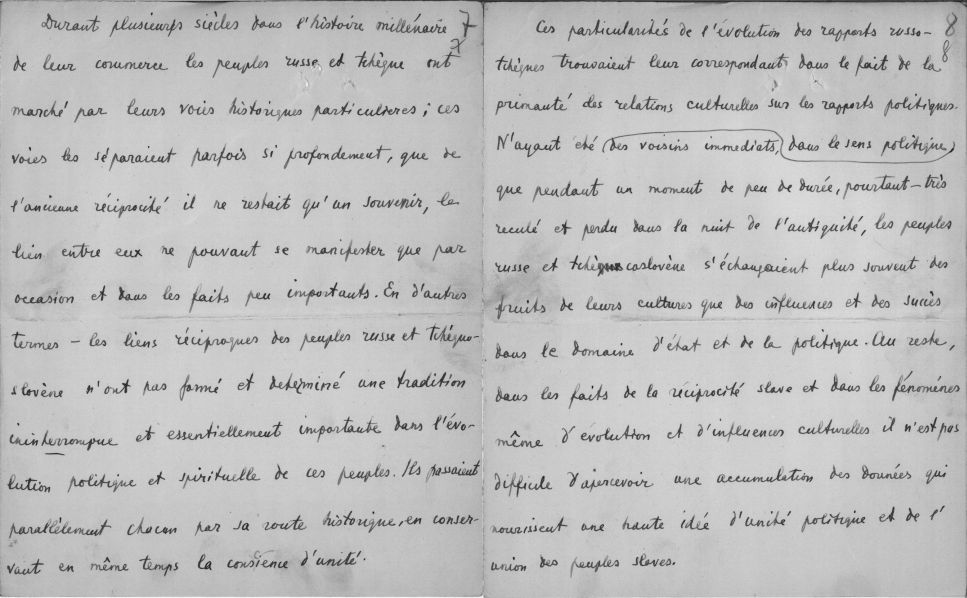 7
7
Durant plusieurs siècles dans l'histoire millénaire
de leur commerce les peuples russe et tchèque ont
marché par leurs voies historiques particulieres; ces
voies les séparaient parfois si profondement, que de
l'ancienne réciprocité il ne restait qu'un souvenir, le
lien entre eux ne pouvant se manifester que par
occasion et dans les faits peu importants. En d'autres
termes – les liens réciproques des peuples russe et tchéquo-
slovène n'ont pas formé et determiné une tradition
ininterrompue et essentiellement importante dans l'évo-
lution politique et spirituelle de ces peuples. Ils passaient
parallèlement chacun par sa route historique, en conser-
vant en même temps la consience d'unité.
8
8
Ces particularités de l'évolution des rapports russo-
tchèques trouvaient leur correspondant dans le fait de la
primauté des relations culturelles sur les rapports politiques.
N'ayant eté (des voisins immediats, dans le sens politique,)
que pendant un moment de peu de durée, pourtant – très
reculé et perdu dans la nuit de l'antiquité, les peuples
russe et tchèquoslovène s'échangaient plus souvent des
fruits de leurs cultures que des influences et des succès
dans le domaine d'état et de la politique. Au reste,
dans les faits de la réciprocité slave et dans les fénomènes
même d'évolution et d'influences culturelles il n'est pas
difficile d'apercevoir une accumulation des données qui
nourissent une haute idée d'unité politique et de l'
union des peuples slaves.